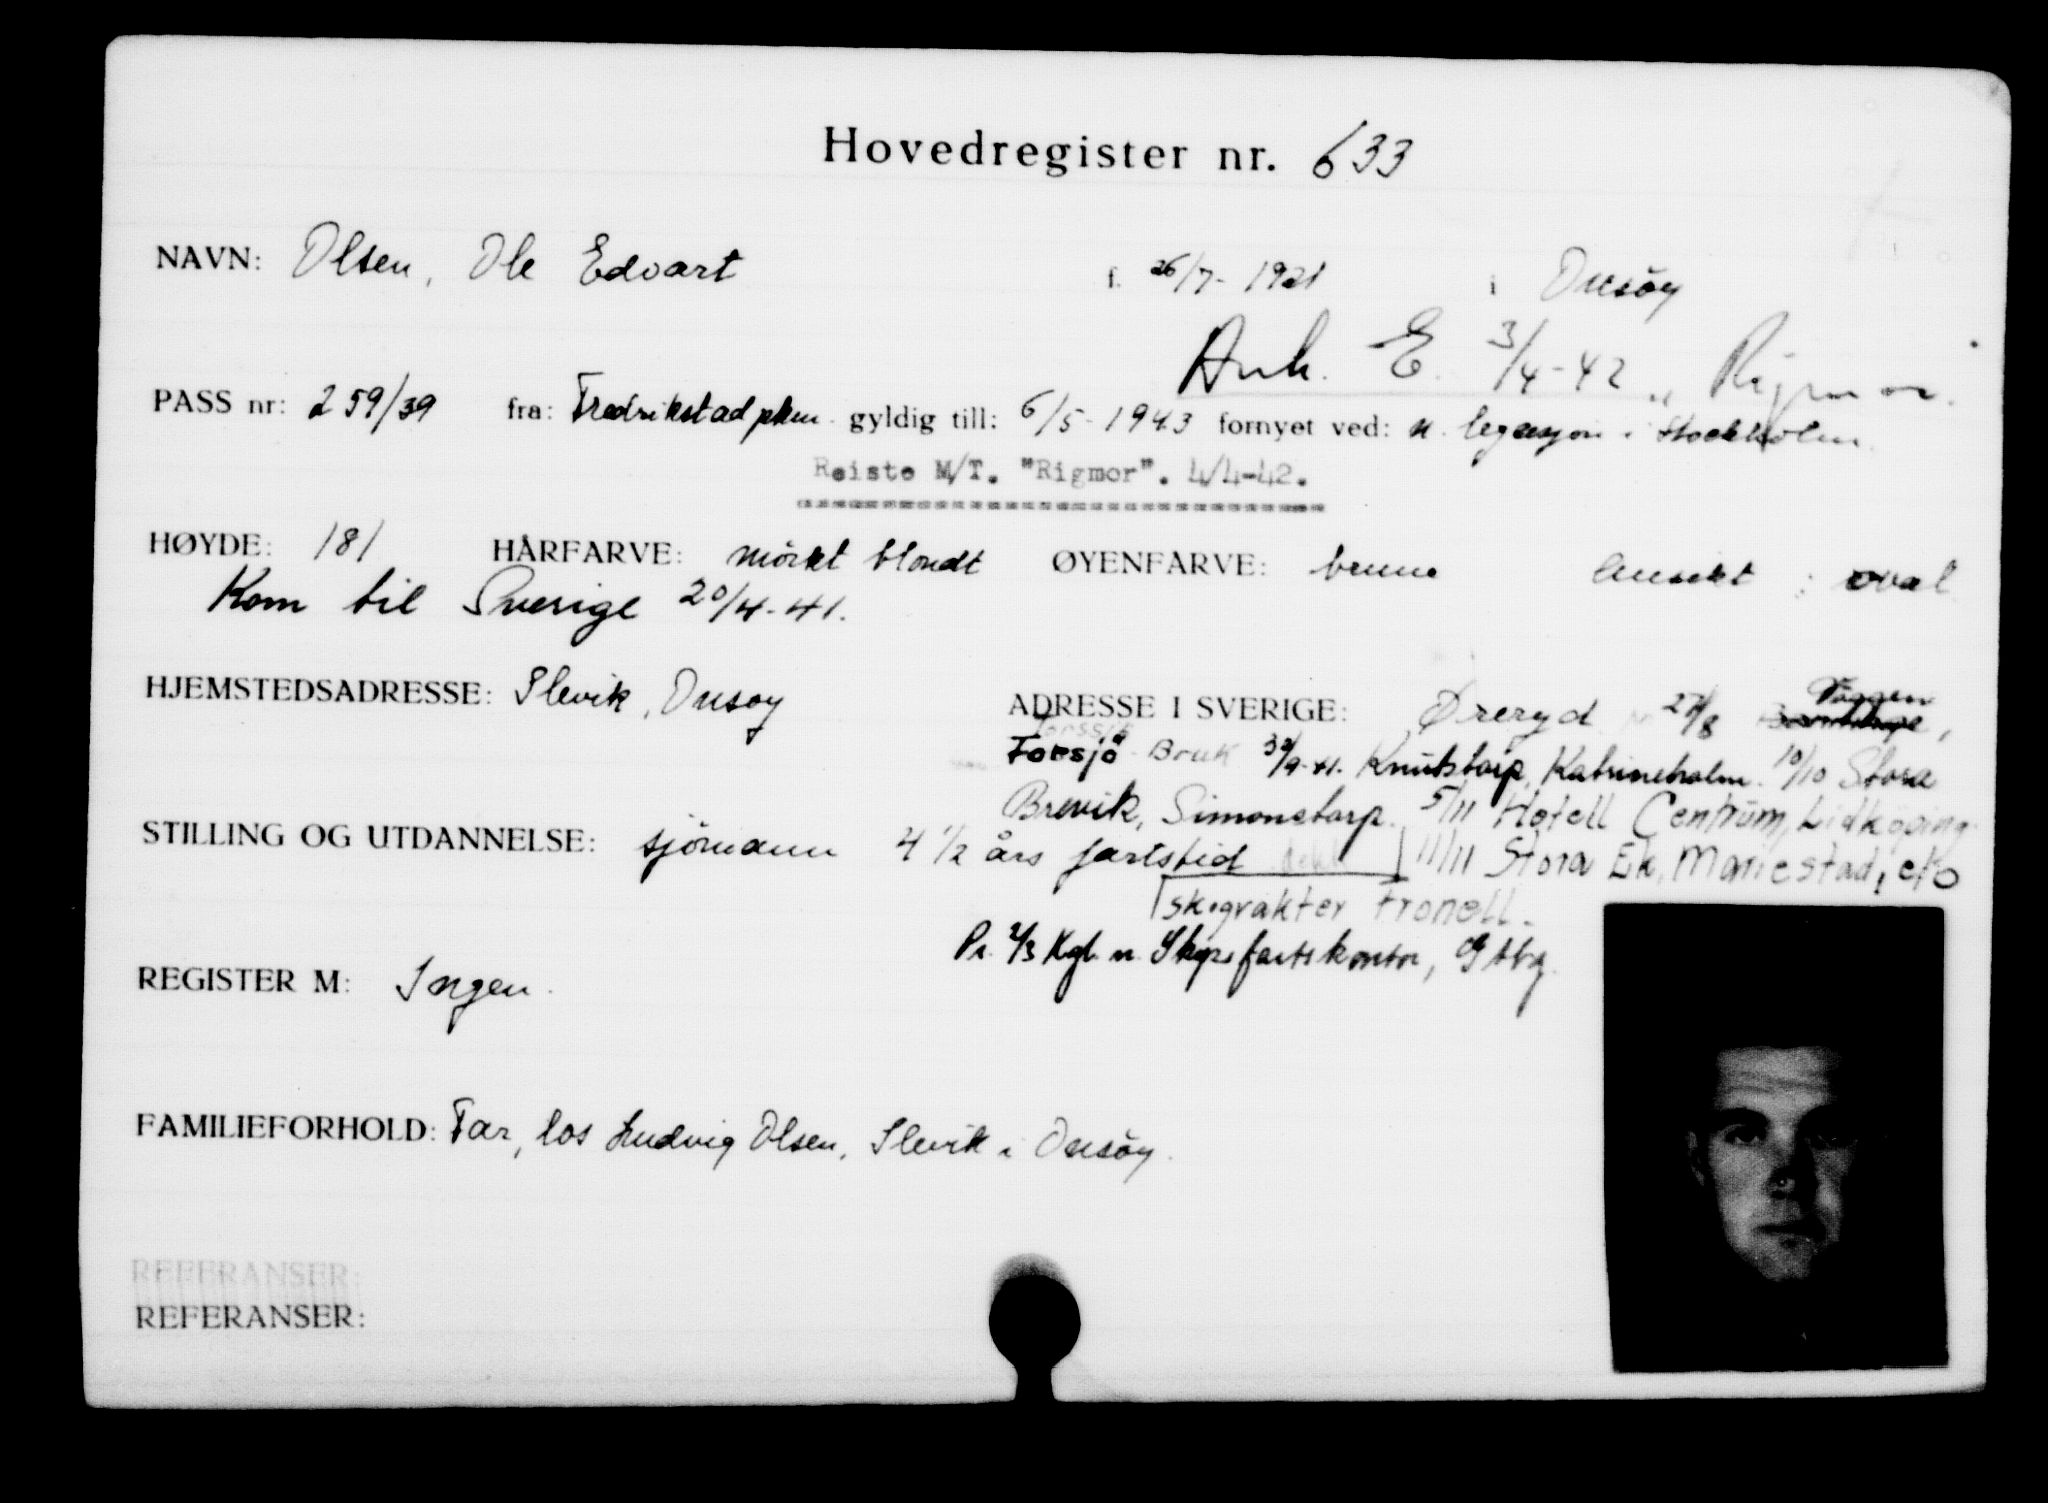 Hovedregister nr. 633
NAVN: Olsen, Ole Edvart f. 26/7- 1921 i Onsöy
Ank. E. 3/4-42 „ Rigmor.
PASS nr: 259/39 fra: Fredrikstad pkm. gyldig till: 6/5-1943 fornyet ved: n. legasjon i Stockholm.
Reiste M/T. "Rigmor". 4/4-42.
HØYDE: 181 HÅRFARVE: mörkt blondt ØYENFARVE: brune Ansikt : oval
Kom til Sverige 20/4-41.
HJEMSTEDSADRESSE: Slevik, Onsøy
ADRESSE I SVERIGE: Øreryd 27/8 Vaggen,
Forsjö Bruk 30/9-41. Knutstorp, Katrineholm. 10/10 Stora
Brevik, Simonstorp. 5/11 Hotell Centrum, Lidköping.
STILLING OG UTDANNELSE: sjömann 4 1/2 års fartstid
11/11 Stora Ek, Mariestad, c/o
skogvakter Fronell.
Pr. 2/3 Kgl. n. Skipsfartskontor, Gtbg.
REGISTER M: Ingen.
FAMILIEFORHOLD: Far, los Ludvig Olsen, Slevik i Onsöy.
REFERANSER:
REFERANSER: